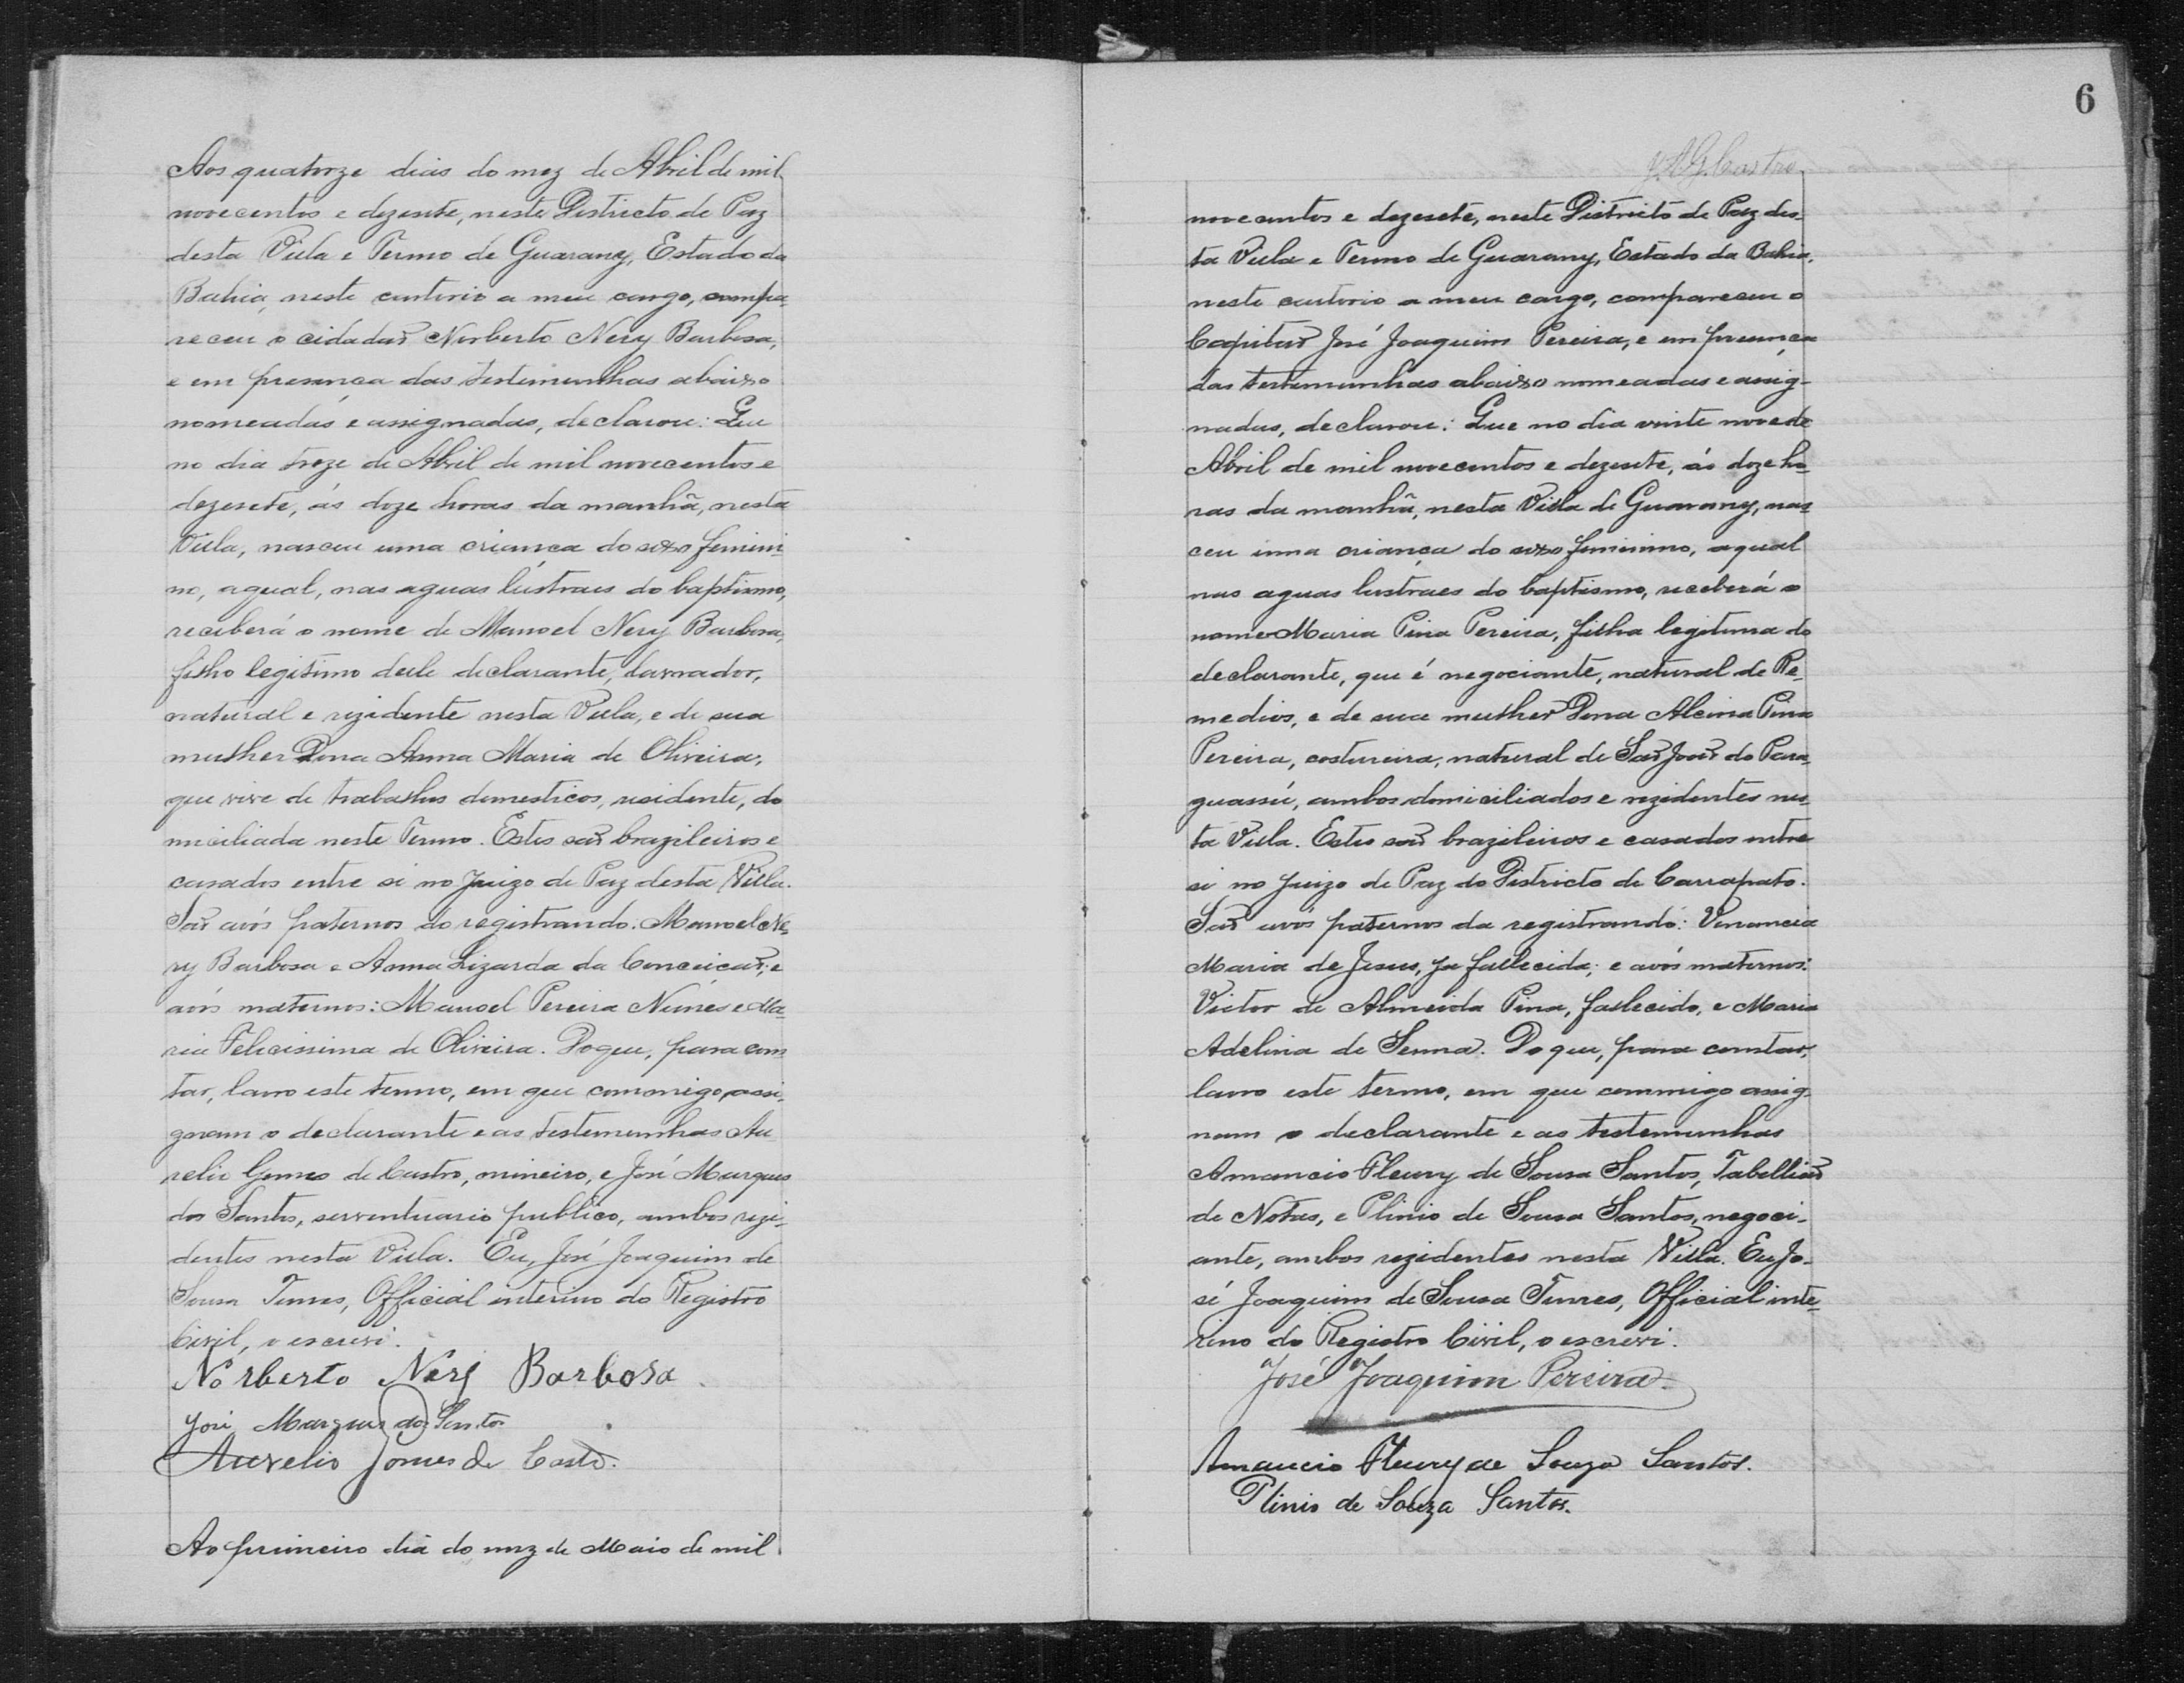 Aos quatorze dias do mez de Abril de mil
novecentos e dezesete, neste Districto de Paz
desta Villa e Termo de Guarany, Estado da
Bahia, neste cartorio a meu cargo, compa-
receu o cidadão Norberto Nery Barbosa,
e em presença das testemunhas abaixo
nomeadas e assignadas, declarou: Que
no dia treze de Abril de mil novecentos e
dezesete, ás doze horas da manhã, nesta
Villa, nasceu uma criança do sexo femini-
no, aqual, nas aguas lustraes do baptismo,
receberá o nome de Manoel Nery Barbosa,
filho legitimo dele declarante, lavrador,
natural e rezidente nesta Villa, e de sua
mulher Dona Anna Maria de Oliveira,
que vive de trabalhos domesticos, residente, do
miciliada neste Termo. Estes são brazileiros e
casados entre si no Juizo de Paz desta Villa.
São avós paternos do registrando: Manoel Ne-
ry Barbosa e Anna Lizarda da Conceição; e
avós maternos: Manoel Pereira Nunes e Ma-
ria Felicissima de Oliveira. Do que, para cons
tar, lavro este termo, em que commigo, assi-
gnam o declarante e as testemunhas Au
relio Gomes de Castro, mineiro, e José Marques
dos Santos, serventuario publico, ambos rezi-
dentes nesta Villa. Eu, José Joaquim de
Sousa Tunes, Official interino do Registro
Civil, o escrevi.
Norberto Nery Barbosa
José Marques dos Santos
Aurelio Gomes de Castro.
Ao primeiro dia do mez de Maio de mil
6
J.A.G.Castro
novecentos e dezesete, neste Districto de Paz des-
ta Villa e Termo de Guarany, Estado da Bahia,
neste cartorio a meu cargo, compareceu o
Capitão José Joaquim Pereira, e em presença
das testemunhas abaixo nomeadas e assig-
nadas, declarou: Que no dia vinte nove de
Abril de mil novecentos e dezesete, ás doze ho-
ras da manhã, nesta Villa de Guarany, nas
ceu uma criança do sexo feminino, aqual
nas aguas lustraes do baptismo, receberá o
nome Maria Pina Pereira, filha legitima do
declarante, que é negociante, natural de Re-
medios, e de sua mulher Dona Alcina Pina
Pereira, costureira, natural de São João do Para-
guassú, ambos domiciliados e rezidentes nes-
ta Villa. Estes são brazileiros e casados entre
si no Juizo de Paz do Districto de Carrapato.
São avós paternos da registrando: Venancia
Maria de Jesus, ja fallecida; e avós maternos:
Victor de Almeida Pina, fallecido, e Maria
Adelina de Senna. Do que, para constar,
lavro este termo, em que commigo assig-
nam o declarante e as testemunhas
Amancio Fleury de Sousa Santos, Tabellião
de Notas, e Plinio de Sousa Santos, negoci-
ante, ambos rezidentes nesta Villa. Eu Jo-
sé Joaquim de Sousa Tunes, Official inte-
rino do Registro Civil, o escrevi.
José Joaquim Pereira
Amancio Fleury de Souza Santos.
Plinio de Souza Santos.